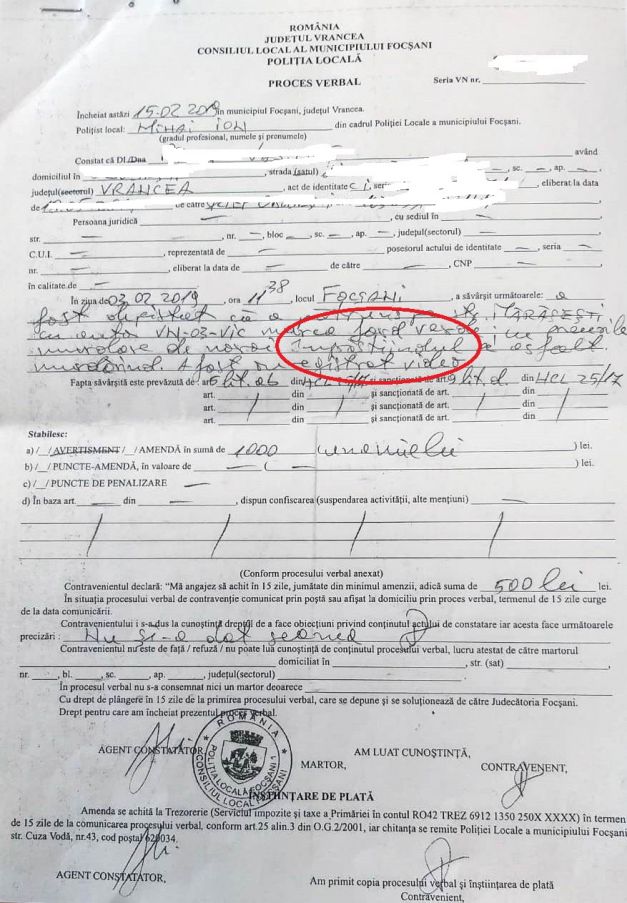 ROMÂNIA
JUDEȚUL VRANCEA
CONSILIUL LOCAL AL MUNICIPIULUI FOCȘANI
POLIȚIA LOCALĂ
PROCES VERBAL Seria VN nr.
Încheiat astăzi 15.02 2019 în municipiul Focșani, județul Vrancea.
Polițist local: MIHAI ION din cadrul Poliției Locale a municipiului Focșani.
(gradul profesional, numele și prenumele)
Constat că Dl./Dna având
domiciliul în , strada (satul) , sc. , ap. ,
județul(sectorul) VRANCEA , act de identitate C i, , eliberat la data
de de către
Persoana juridică — , cu sediul în —
str. — , nr. — , bloc — , sc. — , ap. — , județul(sectorul) —
C.U.I. — , reprezentată de — posesorul actului de identitate — , seria —
nr. — , eliberat la data de — de către — , CNP — ,
în calitate de —
În ziua de 03 02 2019 , ora 11 38 , locul FOCȘANI , a săvârșit următoarele: a
fost depistat că a str. MĂRĂȘEȘTI
cu auto VN-03-VIC marca ford
de noroi împrăștiindul pe asfalt.
A fost înregistrat video
Fapta săvârșită este prevăzută de : art. lit. din HCL și sancționată de art. lit. d. din HCL 25/17
art. / din / și sancționată de art. / din /
art. / din / și sancționată de art. / din /
Stabilesc:
a) /_/ AVERTISMENT /_/ AMENDĂ în sumă de 1000 ( unamielei ) lei.
b) /_/ PUNCTE-AMENDĂ, în valoare de — ( — ) lei.
c) /_/ PUNCTE DE PENALIZARE —
d) În baza art. — din — , dispun confiscarea (suspendarea activității, alte mențiuni) —
/ / / /
(Conform procesului verbal anexat)
Contravenientul declară: "Mă angajez să achit în 15 zile, jumătate din minimul amenzii, adică suma de 500 lei lei.
În situația procesului verbal de contravenție comunicat prin poștă sau afișat la domiciliu prin proces verbal, termenul de 15 zile curge
de la data comunicării.
Contravenientului i s-a adus la cunoștință dreptul de a face obiecțiuni privind conținutul actului de constatare iar acesta face următoarele
precizări : Nu și-a dat seama
Contravenientul nu este de față / refuză / nu poate lua cunoștință de conținutul procesului verbal, lucru atestat de către martorul
domiciliat în , str. (sat) ,
nr. , bl. , sc. , ap. , județul(sectorul)
În procesul verbal nu s-a consemnat nici un martor deoarece
Cu drept de plângere în 15 zile de la primirea procesului verbal, care se depune și se soluționează de către Judecătoria Focșani.
Drept pentru care am încheiat prezentul proces verbal.
ROMÂNIA
POLIȚIA LOCALĂ FOCȘANI
CONSILIUL LOCAL FOCȘANI
AGENT CONSTATATOR, AM LUAT CUNOȘTINȚĂ,
MARTOR, CONTRAVENENT,
ÎNȘTIINȚARE DE PLATĂ
Amenda se achită la Trezorerie (Serviciul impozite și taxe a Primăriei în contul RO42 TREZ 6912 1350 250X XXXX) în termen
de 15 zile de la comunicarea procesului verbal, conform art.25 alin.3 din O.G.2/2001, iar chitanța se remite Poliției Locale a municipiului Focșani
str. Cuza Vodă, nr.43, cod poștal 620034.
AGENT CONSTATATOR, Am primit copia procesului verbal și înștiințarea de plată
Contravenient,